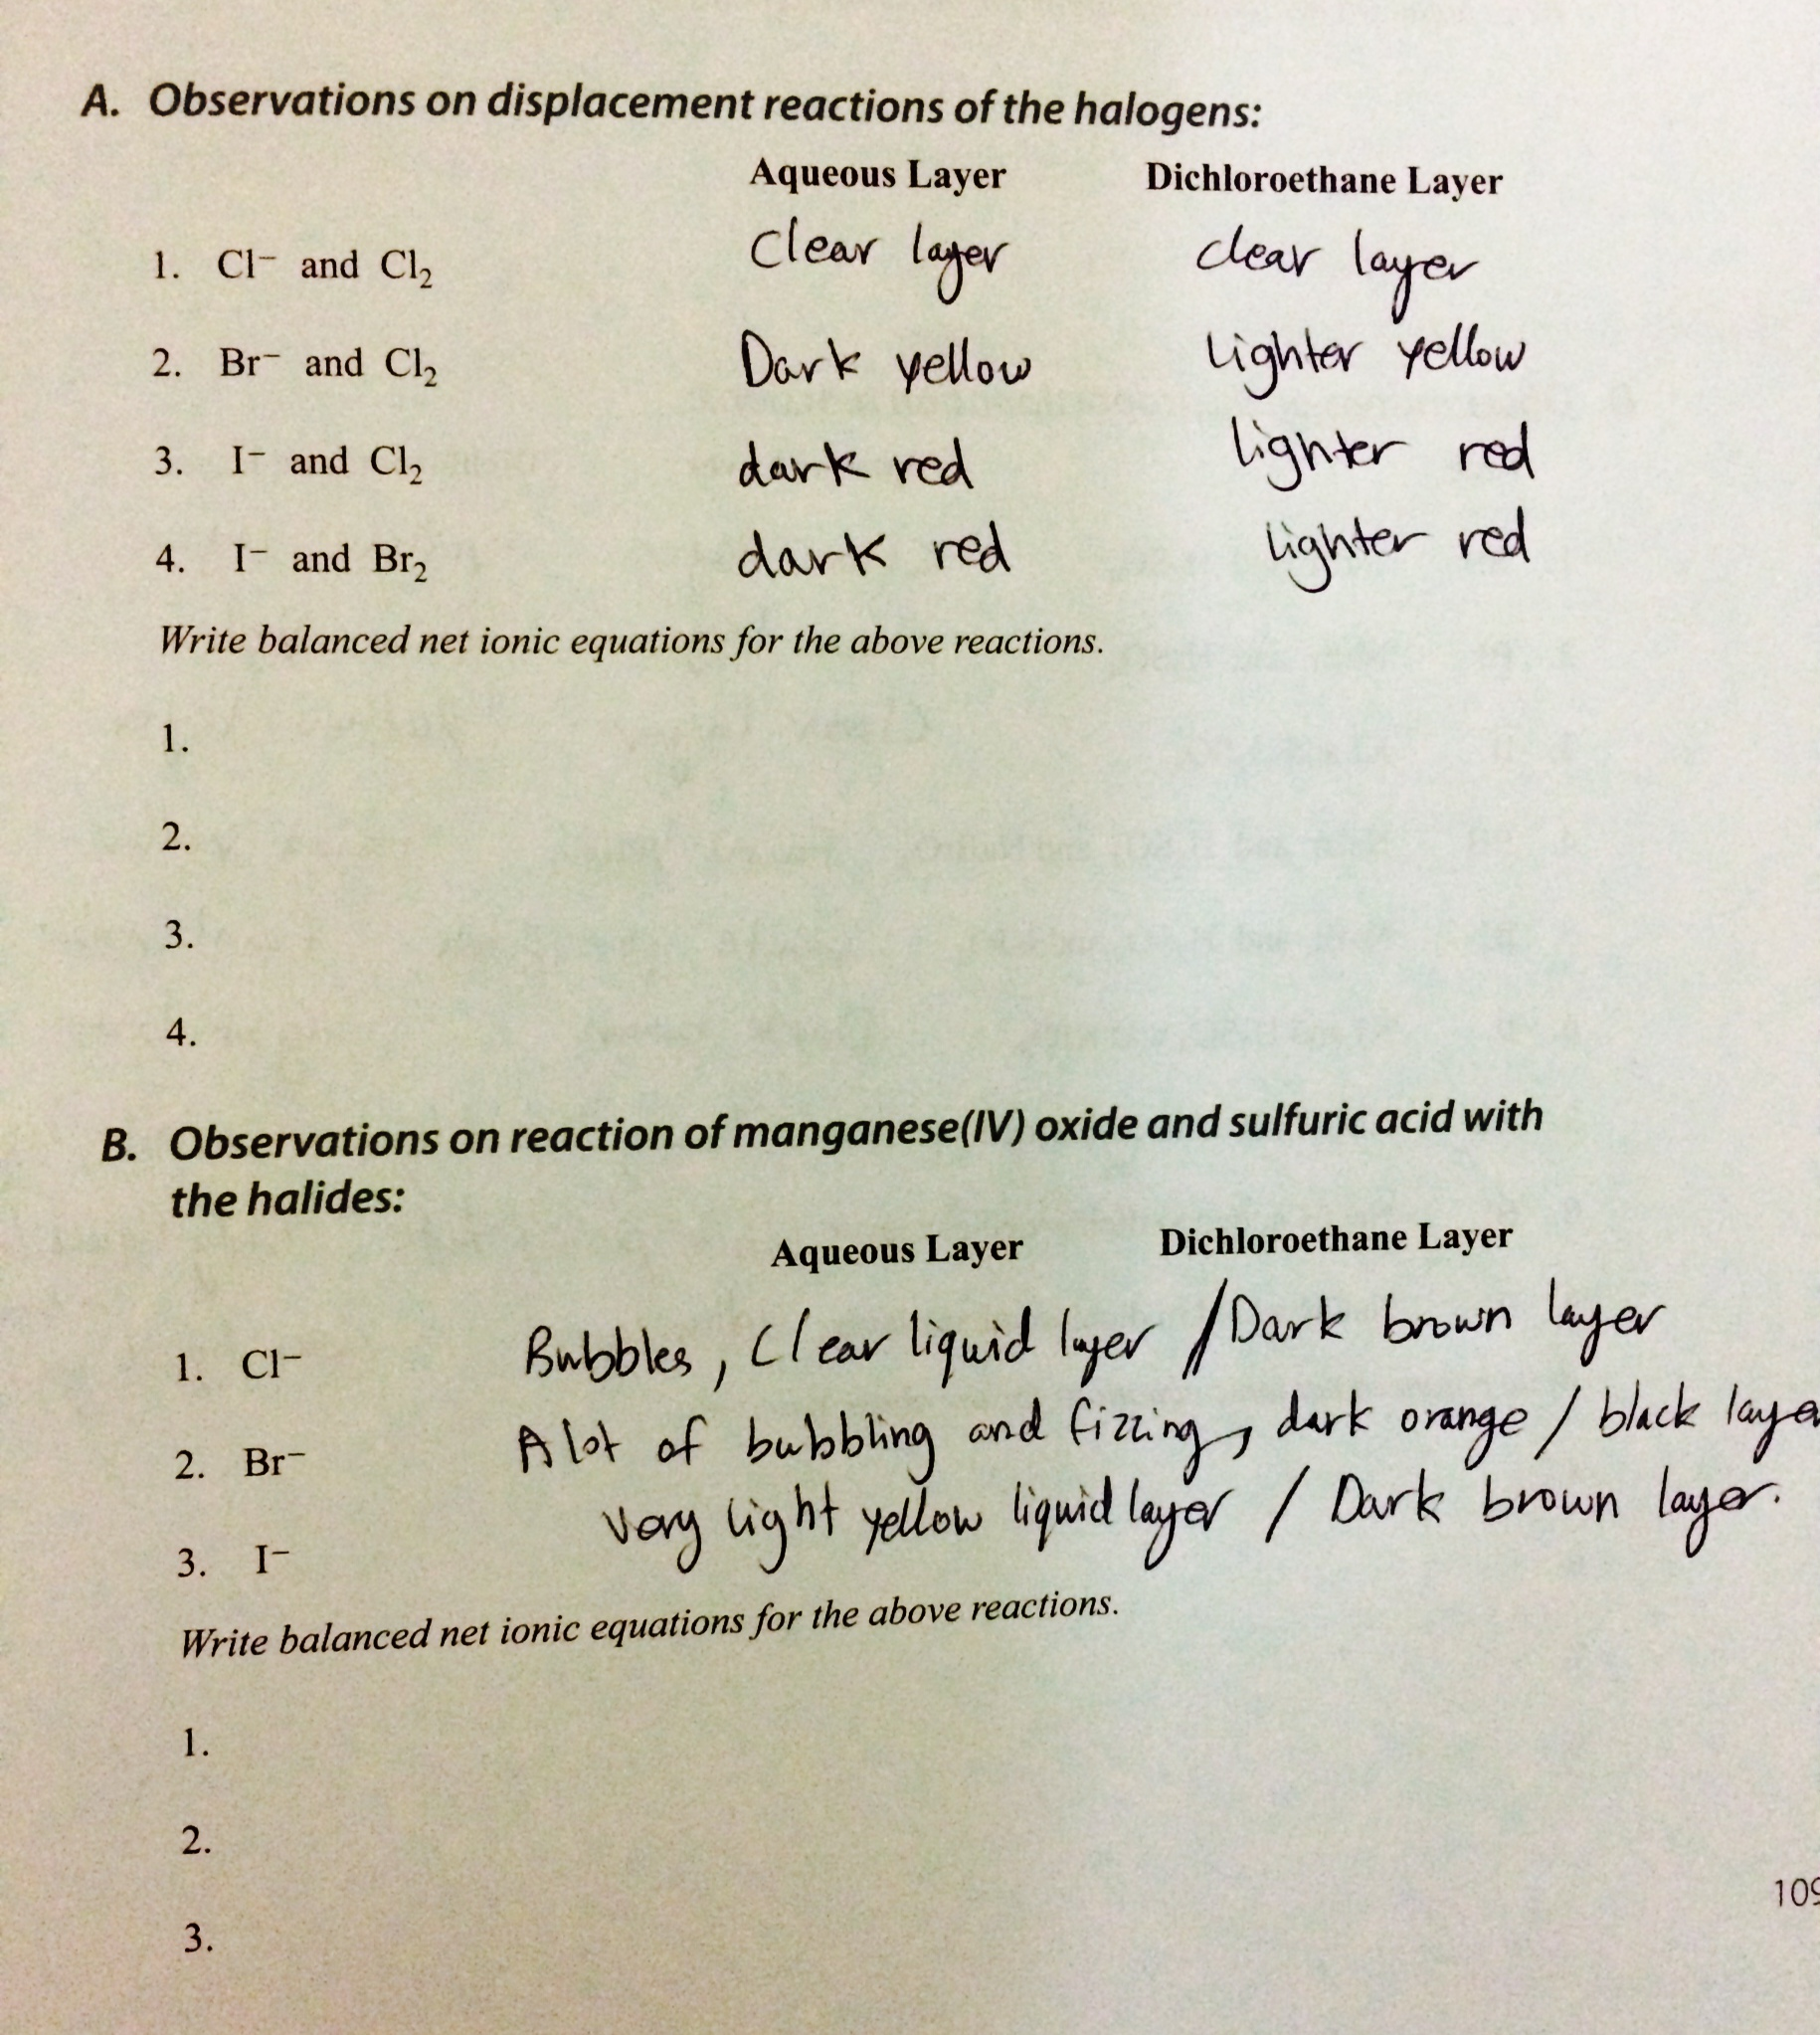 A. Observations on displacement reactions of the halogens:
Aqueous Layer Dichloroethane Layer
1. Cl⁻ and Cl₂ Clear layer clear layer
2. Br⁻ and Cl₂ Dark yellow Lighter yellow
3. I⁻ and Cl₂ dark red lighter red
4. I⁻ and Br₂ dark red lighter red
Write balanced net ionic equations for the above reactions.
1.
2.
3.
4.
B. Observations on reaction of manganese(IV) oxide and sulfuric acid with
the halides:
Aqueous Layer Dichloroethane Layer
1. Cl⁻ Bubbles, Clear liquid layer / Dark brown layer
2. Br⁻ A lot of bubbling and fizzing, dark orange / black laye
3. I⁻ Very light yellow liquid layer / Dark brown layer.
Write balanced net ionic equations for the above reactions.
1.
2.
109
3.